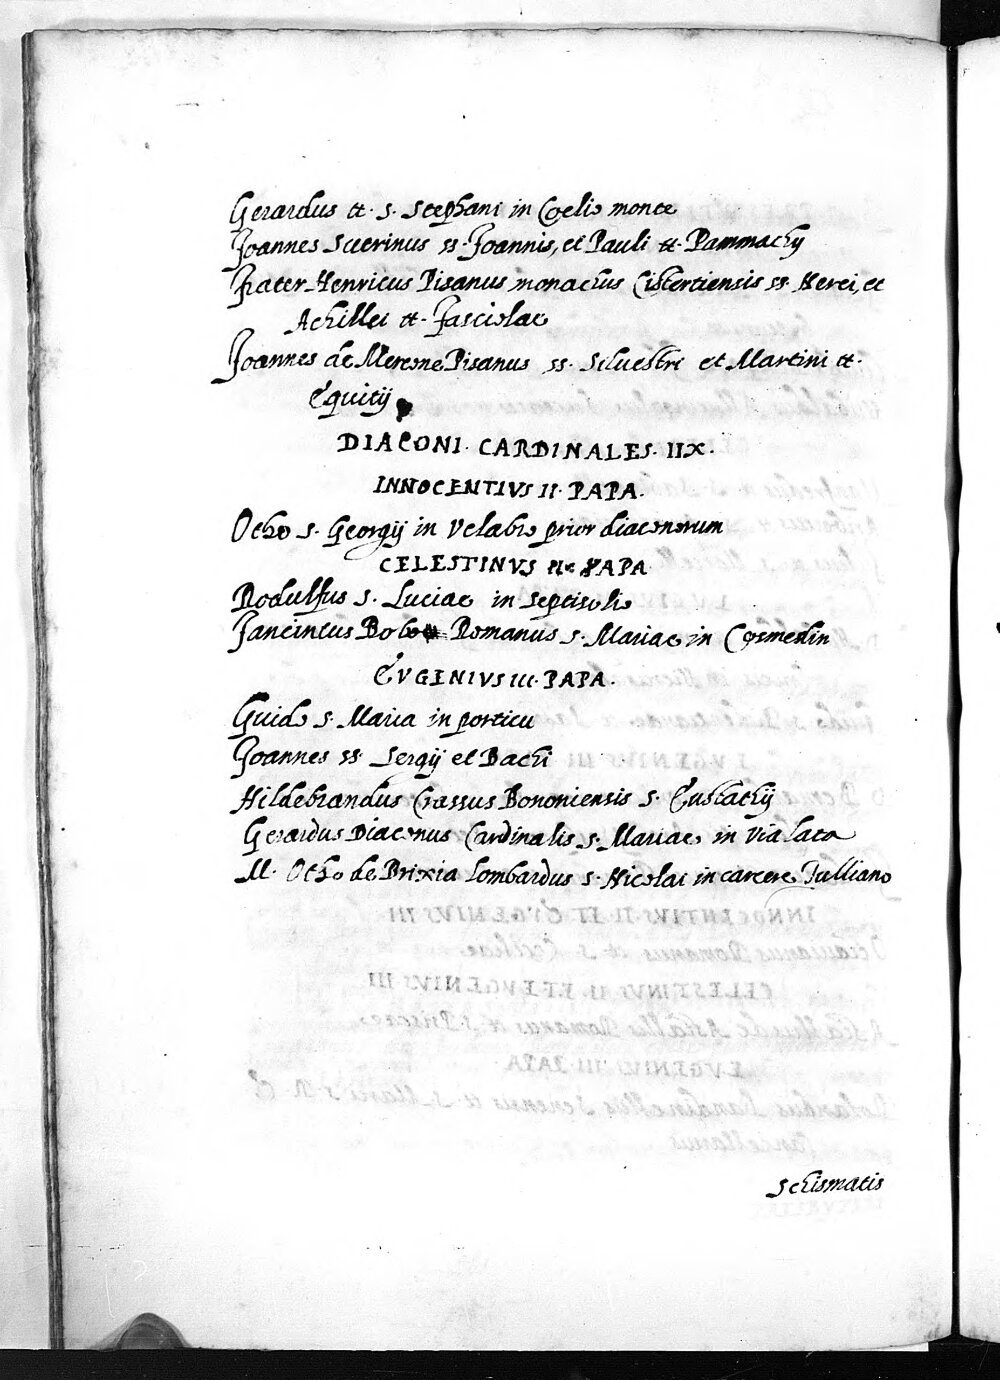 Gerardus tt. s. Stephani in Coelio monte
Joannes Suerinus ss. Joannis, et Pauli tt. Pammachij
Frater Henricus Pisanus monachus Cistertiensis ss. Nerei, et
Achillei tt. Fasciolae
Joannes de Mercone Pisanus ss. Siluestri et Martini tt.
Equitij
DIACONI. CARDINALES. IIX.
INNOCENTIVS II. PAPA.
Otho s. Georgij in Velabro prior diaconorum
CELESTINVS II. PAPA
Rodulfus s. Luciae in septisolio
Jancintus Bobo Romanus s. Mariae in Cosmedin
EVGENIVS III. PAPA.
Guido s. Maria in porticu
Joannes ss. Sergij et Bachi
Hildebrandus Crassus Bononiensis s. Eustachij
Gerardus Diaconus Cardinalis s. Mariae in Via lata
M. Otho de Brixia Lombardus s. Nicolai in carcere Tulliano
Schismatis